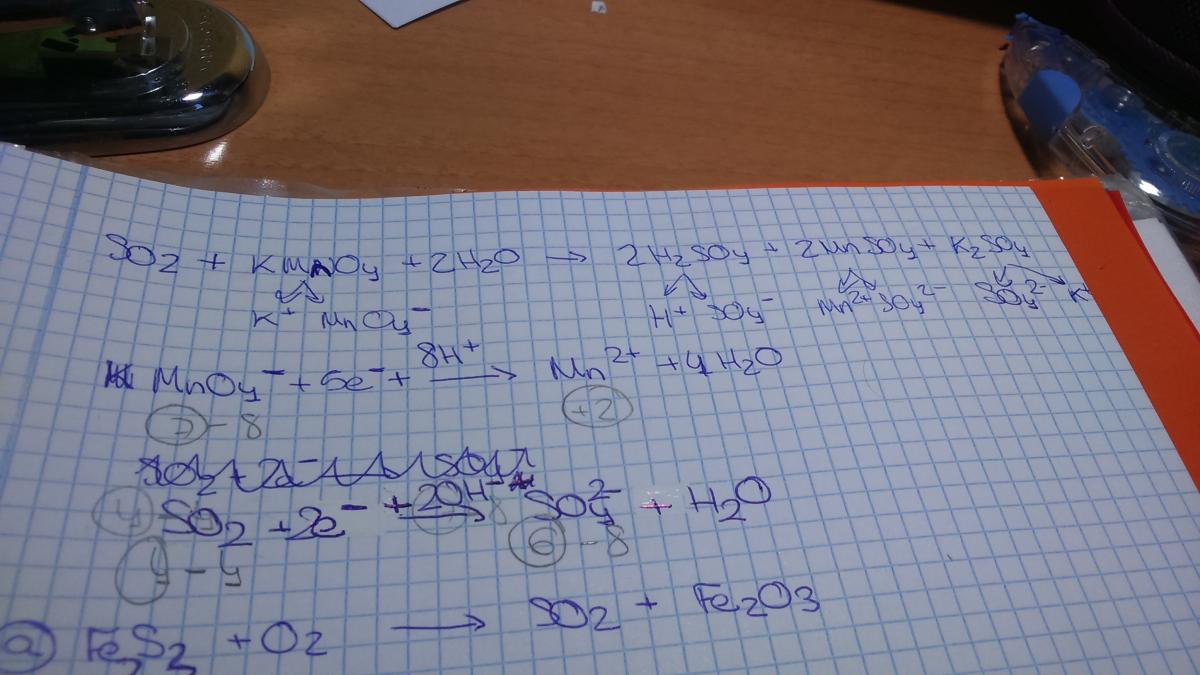 SO2 + KMnO4 + 2H2O → 2H2SO4 + 2MnSO4 + K2SO4
K+ MnO4- H+ SO4- Mn2+ SO4 2- SO4 2- K+
MnO4- + 5e- + 8H+ → Mn2+ + 4H2O
7 - 8 +2
SO2 + 2e- + 2OH- → SO4 2- + H2O
4 - 4 6 - 8
a) Fe2S2 + O2 → SO2 + Fe2O3